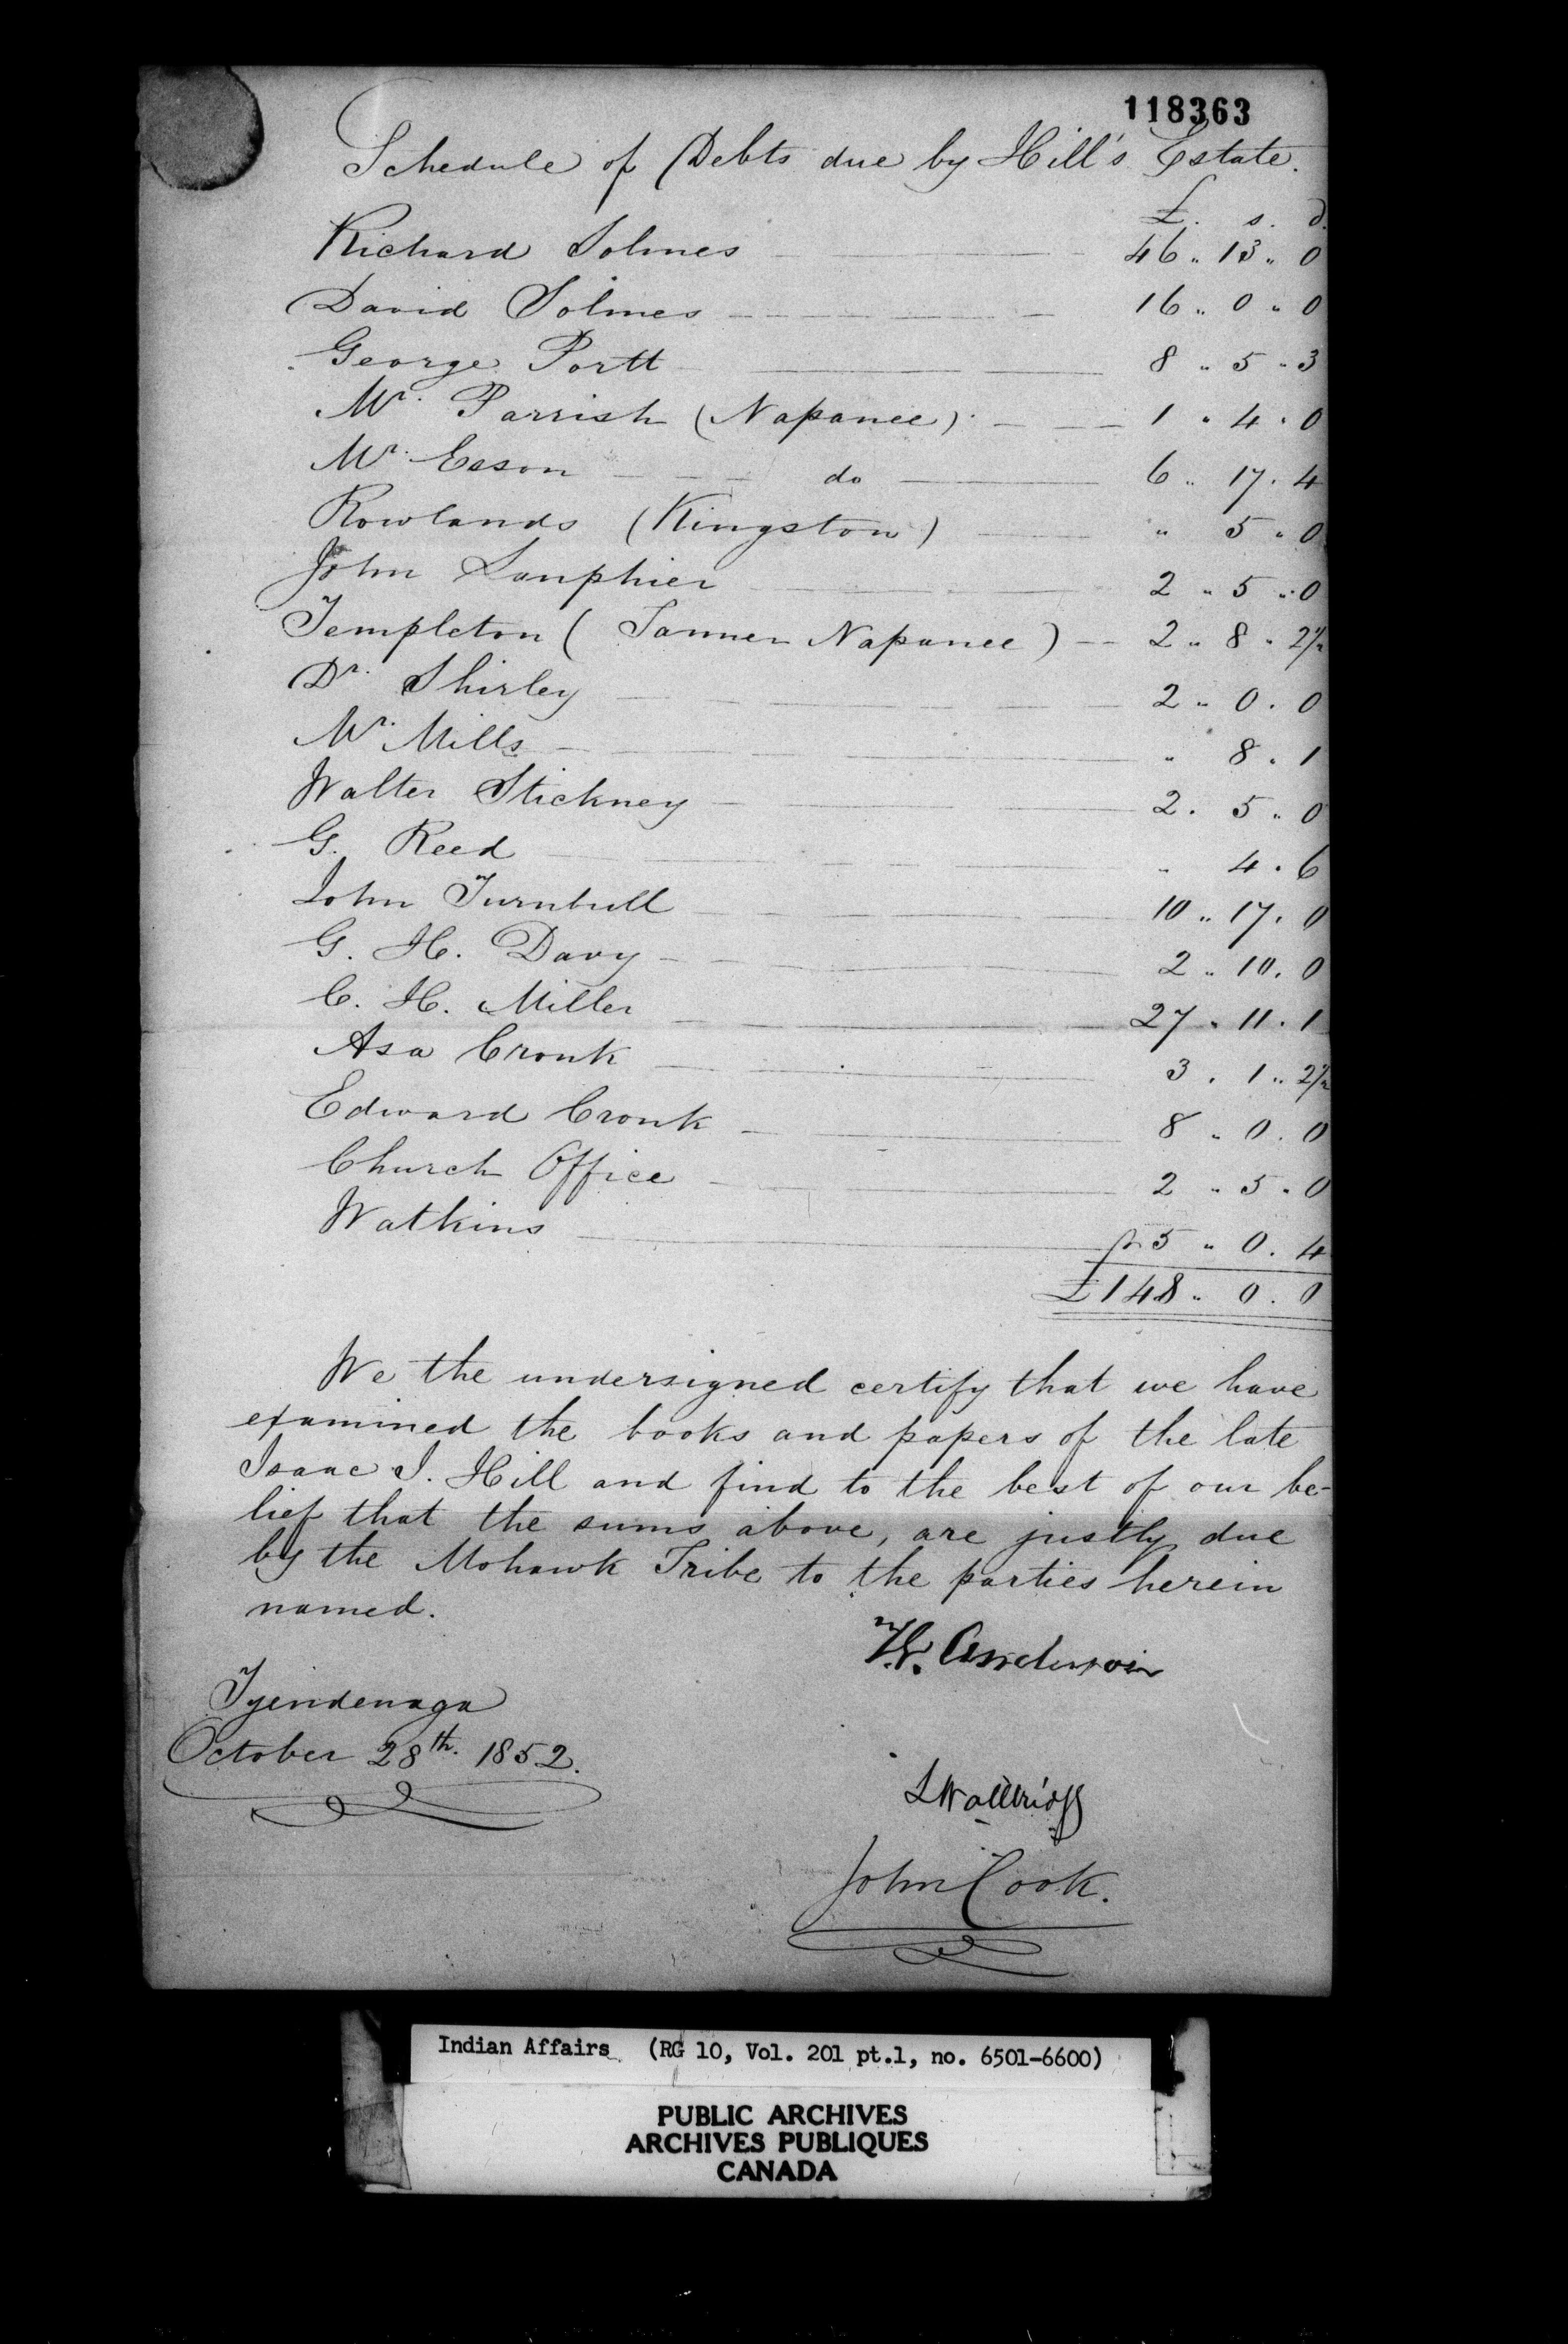 118363
Schedule of Debts due by Hill's Estate.
£. s. d.
Richard Solmes 46 " 13 " 0
David Solmes 16 " 0 " 0
George Portt 8 " 5 " 3
Mr. Parrish (Napanee) 1 " 4 " 0
Mr. Esson do 6 " 17 . 4
Rowlands (Kingston) " 5 " 0
John Lanphier 2 " 5 " 0
Templeton (Tanner Napanee) 2 " 8 " 2½
Dr. Shirley 2 " 0 . 0
Mr. Mills " 8 . 1
Walter Stickney 2 . 5 " 0
G. Reed " 4 . 6
John Turnbull 10 " 17 . 0
G. H. Davy 2 " 10 . 0
C. H. Miller 27 " 11 . 1
Asa Cronk 3 . 1 " 2½
Edward Cronk 8 " 0 . 0
Church Office 2 " 5 " 0
Watkins 5 " 0 . 4
£148 " 0 . 0
We the undersigned certify that we have
examined the books and papers of the late
Isaac J. Hill and find to the best of our be-
lief that the sums above, are justly due
by the Mohawk Tribe to the parties herein
named.
Anderson
Tyendenaga
October 28th. 1852.
L Wallbridge
John Cook.
Indian Affairs (RG 10, Vol. 201 pt.1, no. 6501-6600)
PUBLIC ARCHIVES
ARCHIVES PUBLIQUES
CANADA